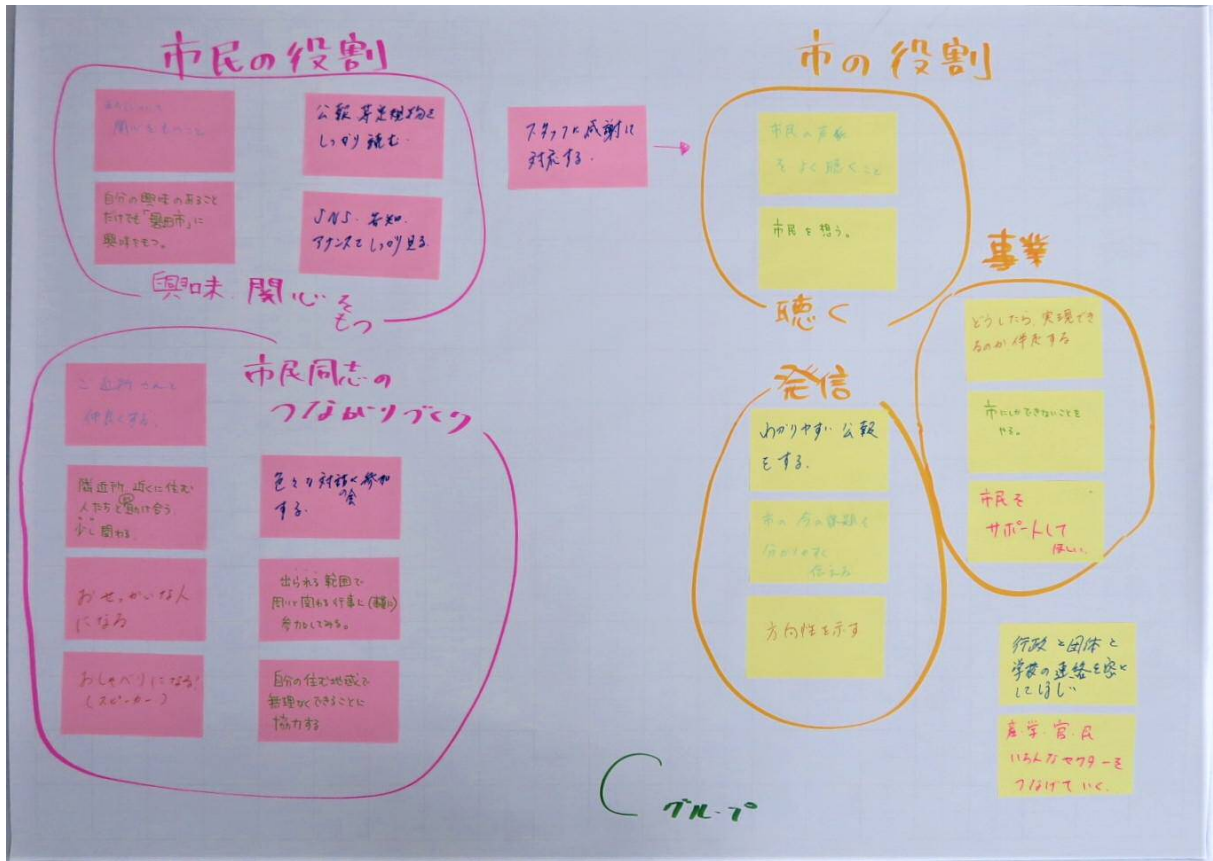 市民の役割
関心をもつこと
公報等定規物を
しっかり読む.
自分の興味のあること
だけでも「磐田市」に
興味をもつ。
SNS.告知.
しっかり見る.
興味.関心を
もつ
スタッフに感謝に
対応する.
市民同志の
つながりづくり
ご近所さんと
仲良くする.
隣近所、近くに住む
人たちと助け合う
少し関わる.
色々な対話の会に参加
する.
おせっかいな人
になる
出られる範囲で
参加してみる。
おしゃべりになる!
(スピーカー)
自分の住む地域で
無理なくできることに
協力する
市の役割
市民の声を
をよく聴くこと
市民を想う。
聴く
事業
どうしたら、実現でき
るのか伴走する
市にしかできないことを
やる。
市民を
サポートして
ほしい.
発信
わかりやすい公報
をする.
市の今の課題を
分かりやすく
伝える
方向性を示す
行政と団体と
学校の連絡を密に
してほしい
産.学.官.民
いろんなセクターを
つなげていく.
Cグループ